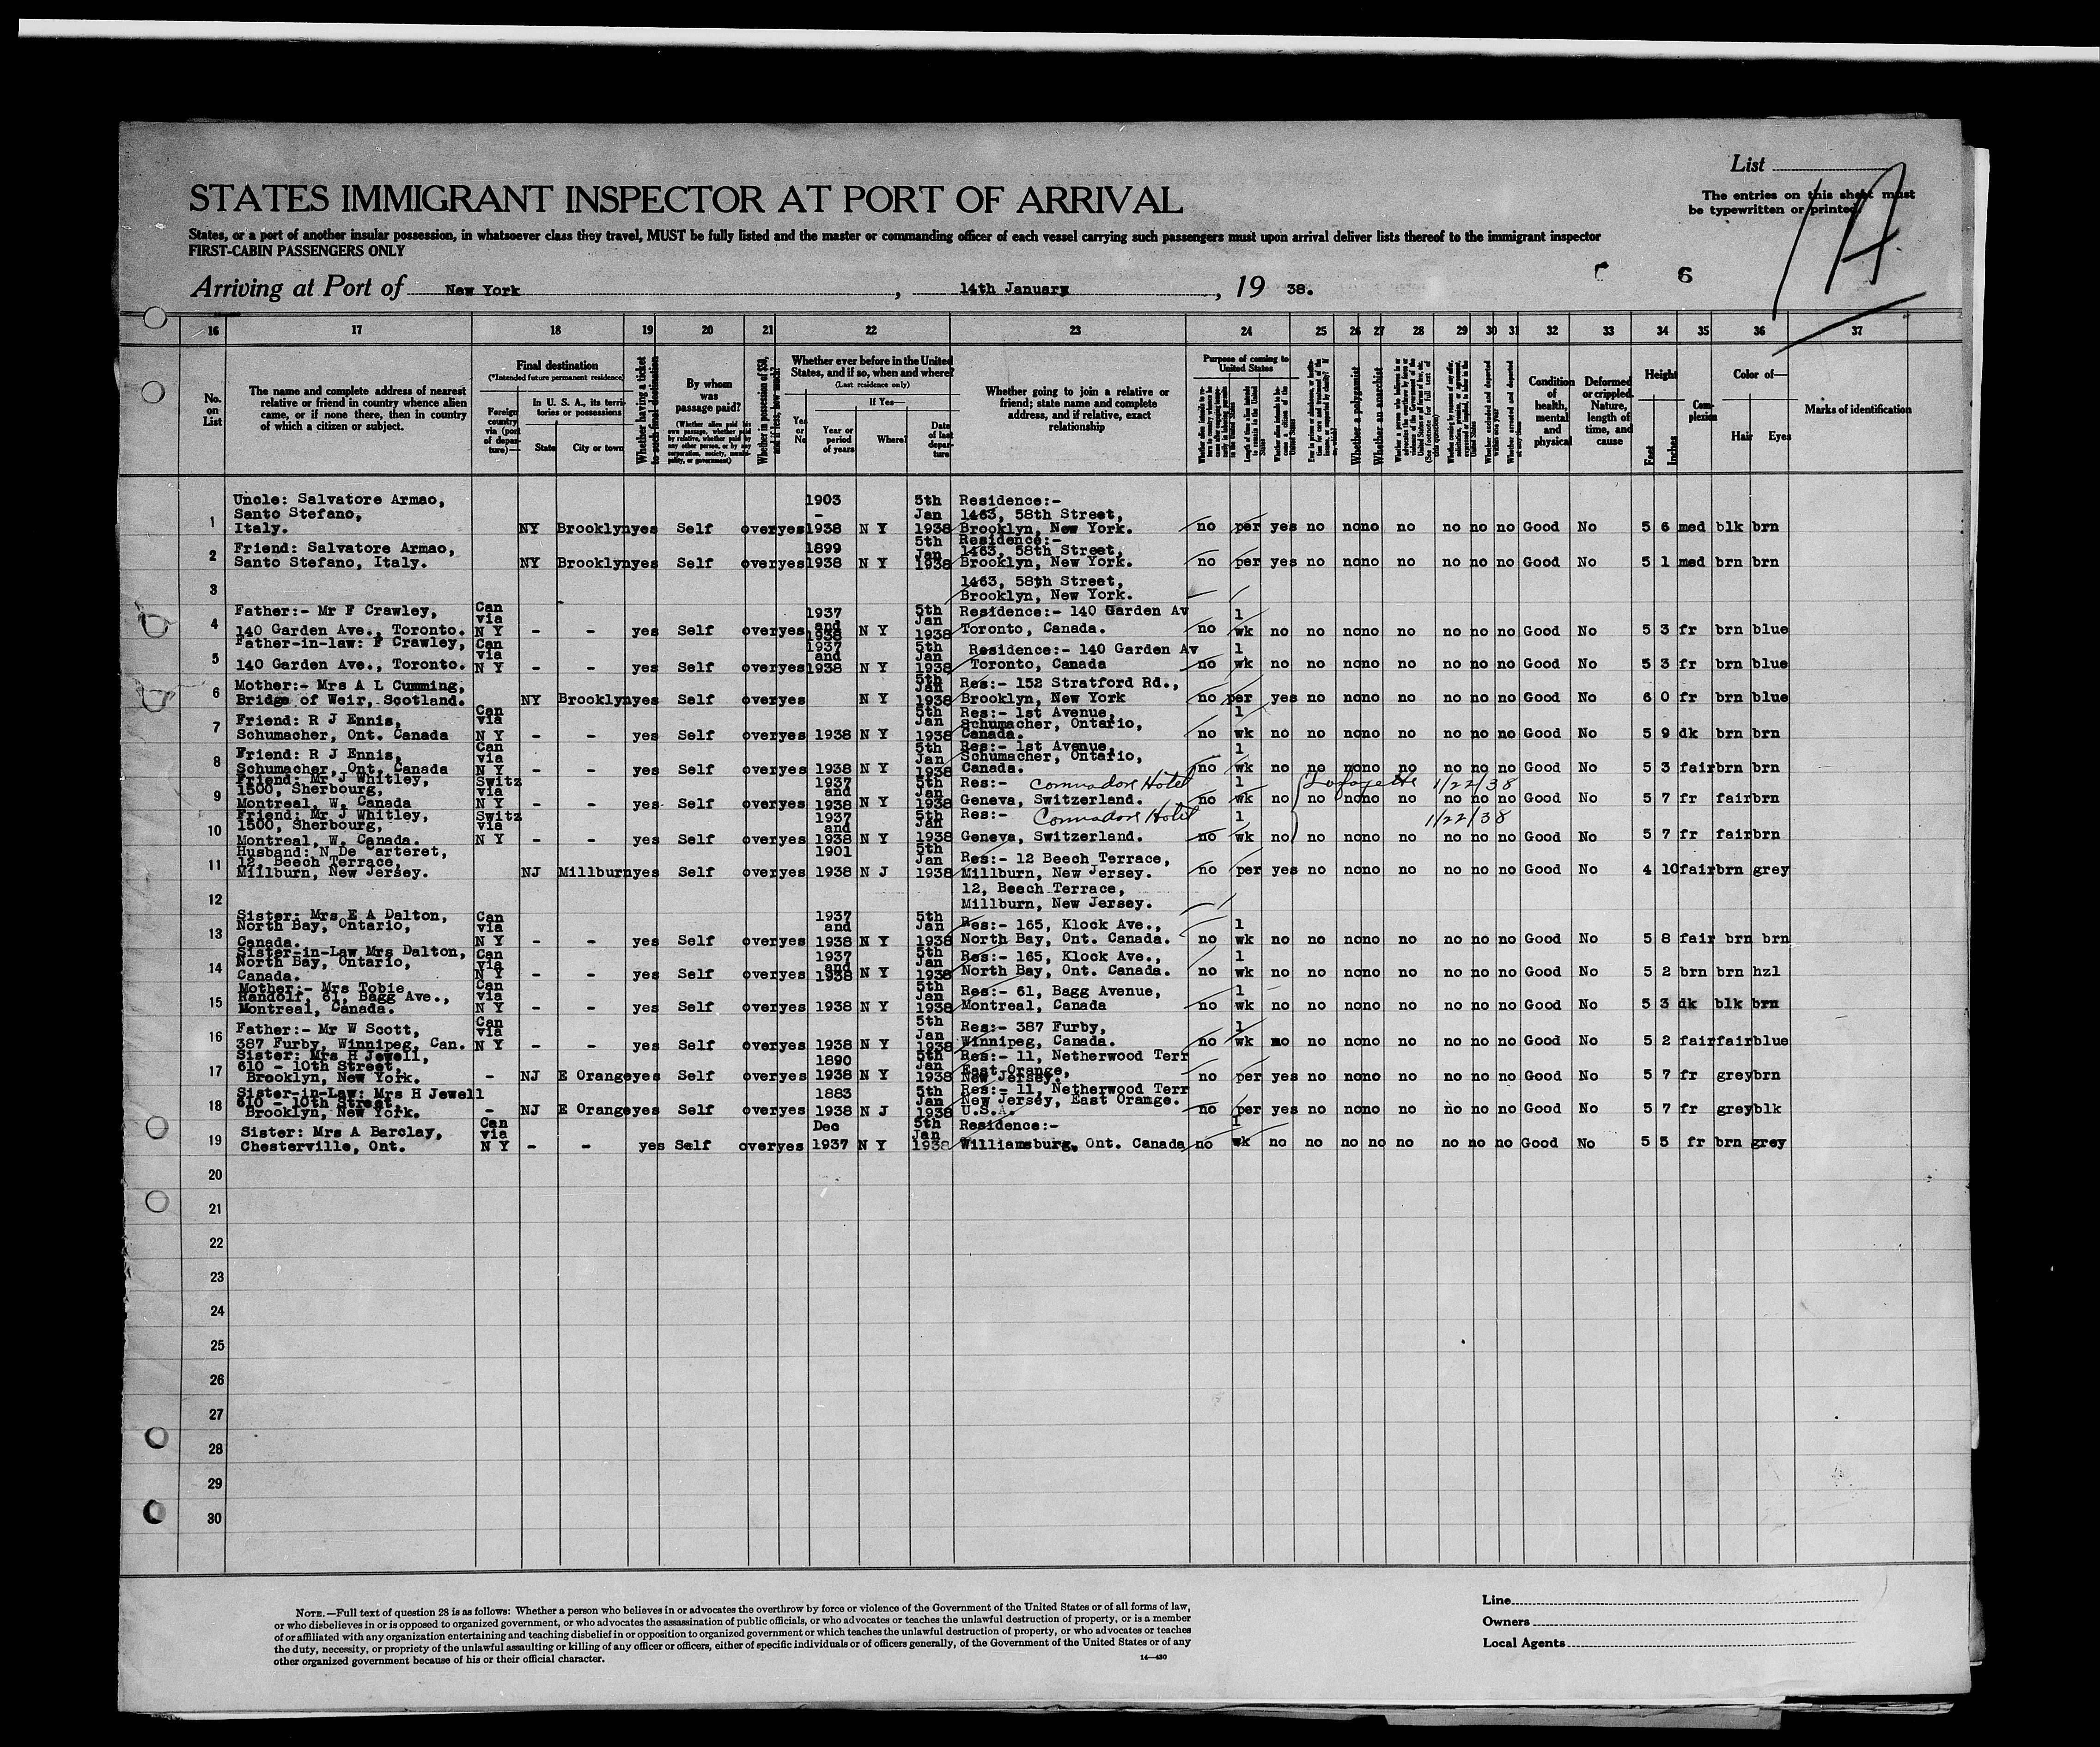 List
The entries on this sheet must
be typewritten or printed
STATES IMMIGRANT INSPECTOR AT PORT OF ARRIVAL
States, or a port of another insular possession, in whatsoever class they travel, MUST be fully listed and the master or commanding officer of each vessel carrying such passengers must upon arrival deliver lists thereof to the immigrant inspector
FIRST-CABIN PASSENGERS ONLY
6
Arriving at Port of New York, 14th January, 19 38.
16 17 18 19 20 21 22 23 24 25 26 27 28 29 30 31 32 33 34 35 36 37
No. on List
The name and complete address of nearest relative or friend in country whence alien came, or if none there, then in country of which a citizen or subject.
Final destination
(*Intended future permanent residence)
Foreign country via (port of departure)—
In U. S. A., its territories or possessions
State
City or town
Whether having a ticket to such final destination
By whom was passage paid?
(Whether alien paid his own passage, whether paid by relative, whether paid by any other person, or by any corporation, society, municipality, or government)
Whether in possession of $50, and if less, how much?
Whether ever before in the United States, and if so, when and where?
(Last residence only)
Yes or No
If Yes—
Year or period of years
Where?
Date of last departure
Whether going to join a relative or friend; state name and complete address, and if relative, exact relationship
Purpose of coming to United States
Whether a polygamist
Whether an anarchist
Condition of health, mental and physical
Deformed or crippled. Nature, length of time, and cause
Height
Feet
Inches
Complexion
Color of—
Hair
Eyes
Marks of identification
1 Uncle: Salvatore Armao, Santo Stefano, Italy. NY Brooklyn yes Self over yes 1903 - 1938 N Y 5th Jan 1938 Residence:- 1463, 58th Street, Brooklyn, New York. no per yes no no no no no no no Good No 5 6 med blk brn
2 Friend: Salvatore Armao, Santo Stefano, Italy. NY Brooklyn yes Self over yes 1899 1938 N Y 5th Jan 1938 Residence:- 1463, 58th Street, Brooklyn, New York. no per yes no no no no no no no Good No 5 1 med brn brn
3 1463, 58th Street, Brooklyn, New York.
4 Father:- Mr F Crawley, 140 Garden Ave., Toronto. Can via N Y - - yes Self over yes 1937 and 1938 N Y 5th Jan 1938 Residence:- 140 Garden Av Toronto, Canada. no 1 wk no no no no no no no no Good No 5 3 fr brn blue
5 Father-in-law: F Crawley, 140 Garden Ave., Toronto. Can via N Y - - yes Self over yes 1937 and 1938 N Y 5th Jan 1938 Residence:- 140 Garden Av Toronto, Canada no 1 wk no no no no no no no no Good No 5 3 fr brn blue
6 Mother:- Mrs A L Cumming, Bridge of Weir, Scotland. NY Brooklyn yes Self over yes N Y 5th Jan 1938 Res:- 152 Stratford Rd., Brooklyn, New York no per yes no no no no no no no Good No 6 0 fr brn blue
7 Friend: R J Ennis, Schumacher, Ont. Canada Can via N Y - - yes Self over yes 1938 N Y 5th Jan 1938 Res:- 1st Avenue, Schumacher, Ontario, Canada. no 1 wk no no no no no no no no Good No 5 9 dk brn brn
8 Friend: R J Ennis, Schumacher, Ont, Canada Can via N Y - - yes Self over yes 1938 N Y 5th Jan 1938 Res:- 1st Avenue, Schumacher, Ontario, Canada. no 1 wk no no no no no no no no Good No 5 3 fair brn brn
9 Friend: Mr J Whitley, 1500, Sherbourg, Montreal, W, Canada Switz via N Y - - yes Self over yes 1937 and 1938 N Y 5th Jan 1938 Res:- Commodore Hotel Geneva, Switzerland. no 1 wk no Lafayette 1/22/38 no no no no no no no Good No 5 7 fr fair brn
10 Friend: Mr J Whitley, 1500, Sherbourg, Montreal, W, Canada. Switz via N Y - - yes Self over yes 1937 and 1938 N Y 5th Jan 1938 Res:- Commodore Hotel Geneva, Switzerland. no 1 wk no 1/22/38 no no no no no no no Good No 5 7 fr fair brn
11 Husband: N De arteret, 12, Beech Terrace, Millburn, New Jersey. NJ Millburn yes Self over yes 1901 1938 N J 5th Jan 1938 Res:- 12 Beech Terrace, Millburn, New Jersey. no per yes no no no no no no no Good No 4 10 fair brn grey
12 12, Beech Terrace, Millburn, New Jersey.
13 Sister: Mrs E A Dalton, North Bay, Ontario, Canada. Can via N Y - - yes Self over yes 1937 and 1938 N Y 5th Jan 1938 Res:- 165, Klock Ave., North Bay, Ont. Canada. no 1 wk no no no no no no no no Good No 5 8 fair brn brn
14 Sister-in-Law Mrs Dalton, North Bay, Ontario, Canada. Can via N Y - - yes Self over yes 1937 and 1938 N Y 5th Jan 1938 Res:- 165, Klock Ave., North Bay, Ont. Canada. no 1 wk no no no no no no no no Good No 5 2 brn brn hzl
15 Mother:- Mrs Tobie Randolf, 61, Bagg Ave., Montreal, Canada. Can via N Y - - yes Self over yes 1938 N Y 5th Jan 1938 Res:- 61, Bagg Avenue, Montreal, Canada no 1 wk no no no no no no no no Good No 5 3 dk blk brn
16 Father:- Mr W Scott, 387 Furby, Winnipeg, Can. Can via N Y - - yes Self over yes 1938 N Y 5th Jan 1938 Res:- 387 Furby, Winnipeg, Canada. no 1 wk no no no no no no no no Good No 5 2 fair fair blue
17 Sister: Mrs H Jewell, 610 - 10th Street, Brooklyn, New York. - NJ E Orange yes Self over yes 1890 1938 N Y 5th Jan 1938 Res:- 11, Netherwood Terr East Orange, New Jersey. no per yes no no no no no no no Good No 5 7 fr grey brn
18 Sister-in-Law: Mrs H Jewell 610 - 10th Street, Brooklyn, New York. - NJ E Orange yes Self over yes 1883 1938 N J 5th Jan 1938 Res:- 11, Netherwood Terr New Jersey, East Orange. U.S.A. no per yes no no no no no no no Good No 5 7 fr grey blk
19 Sister: Mrs A Barclay, Chesterville, Ont. Can via N Y - - yes Self over yes Dec 1937 N Y 5th Jan 1938 Residence:- Williamsburg, Ont. Canada no 1 wk no no no no no no no no Good No 5 5 fr brn grey
20
21
22
23
24
25
26
27
28
29
30
NOTE.—Full text of question 28 is as follows: Whether a person who believes in or advocates the overthrow by force or violence of the Government of the United States or of all forms of law,
or who disbelieves in or is opposed to organized government, or who advocates the assassination of public officials, or who advocates or teaches the unlawful destruction of property, or is a member
of or affiliated with any organization entertaining and teaching disbelief in or opposition to organized government or which teaches the unlawful destruction of property, or who advocates or teaches
the duty, necessity, or propriety of the unlawful assaulting or killing of any officer or officers, either of specific individuals or of officers generally, of the Government of the United States or of any
other organized government because of his or their official character.
14—430
Line
Owners
Local Agents